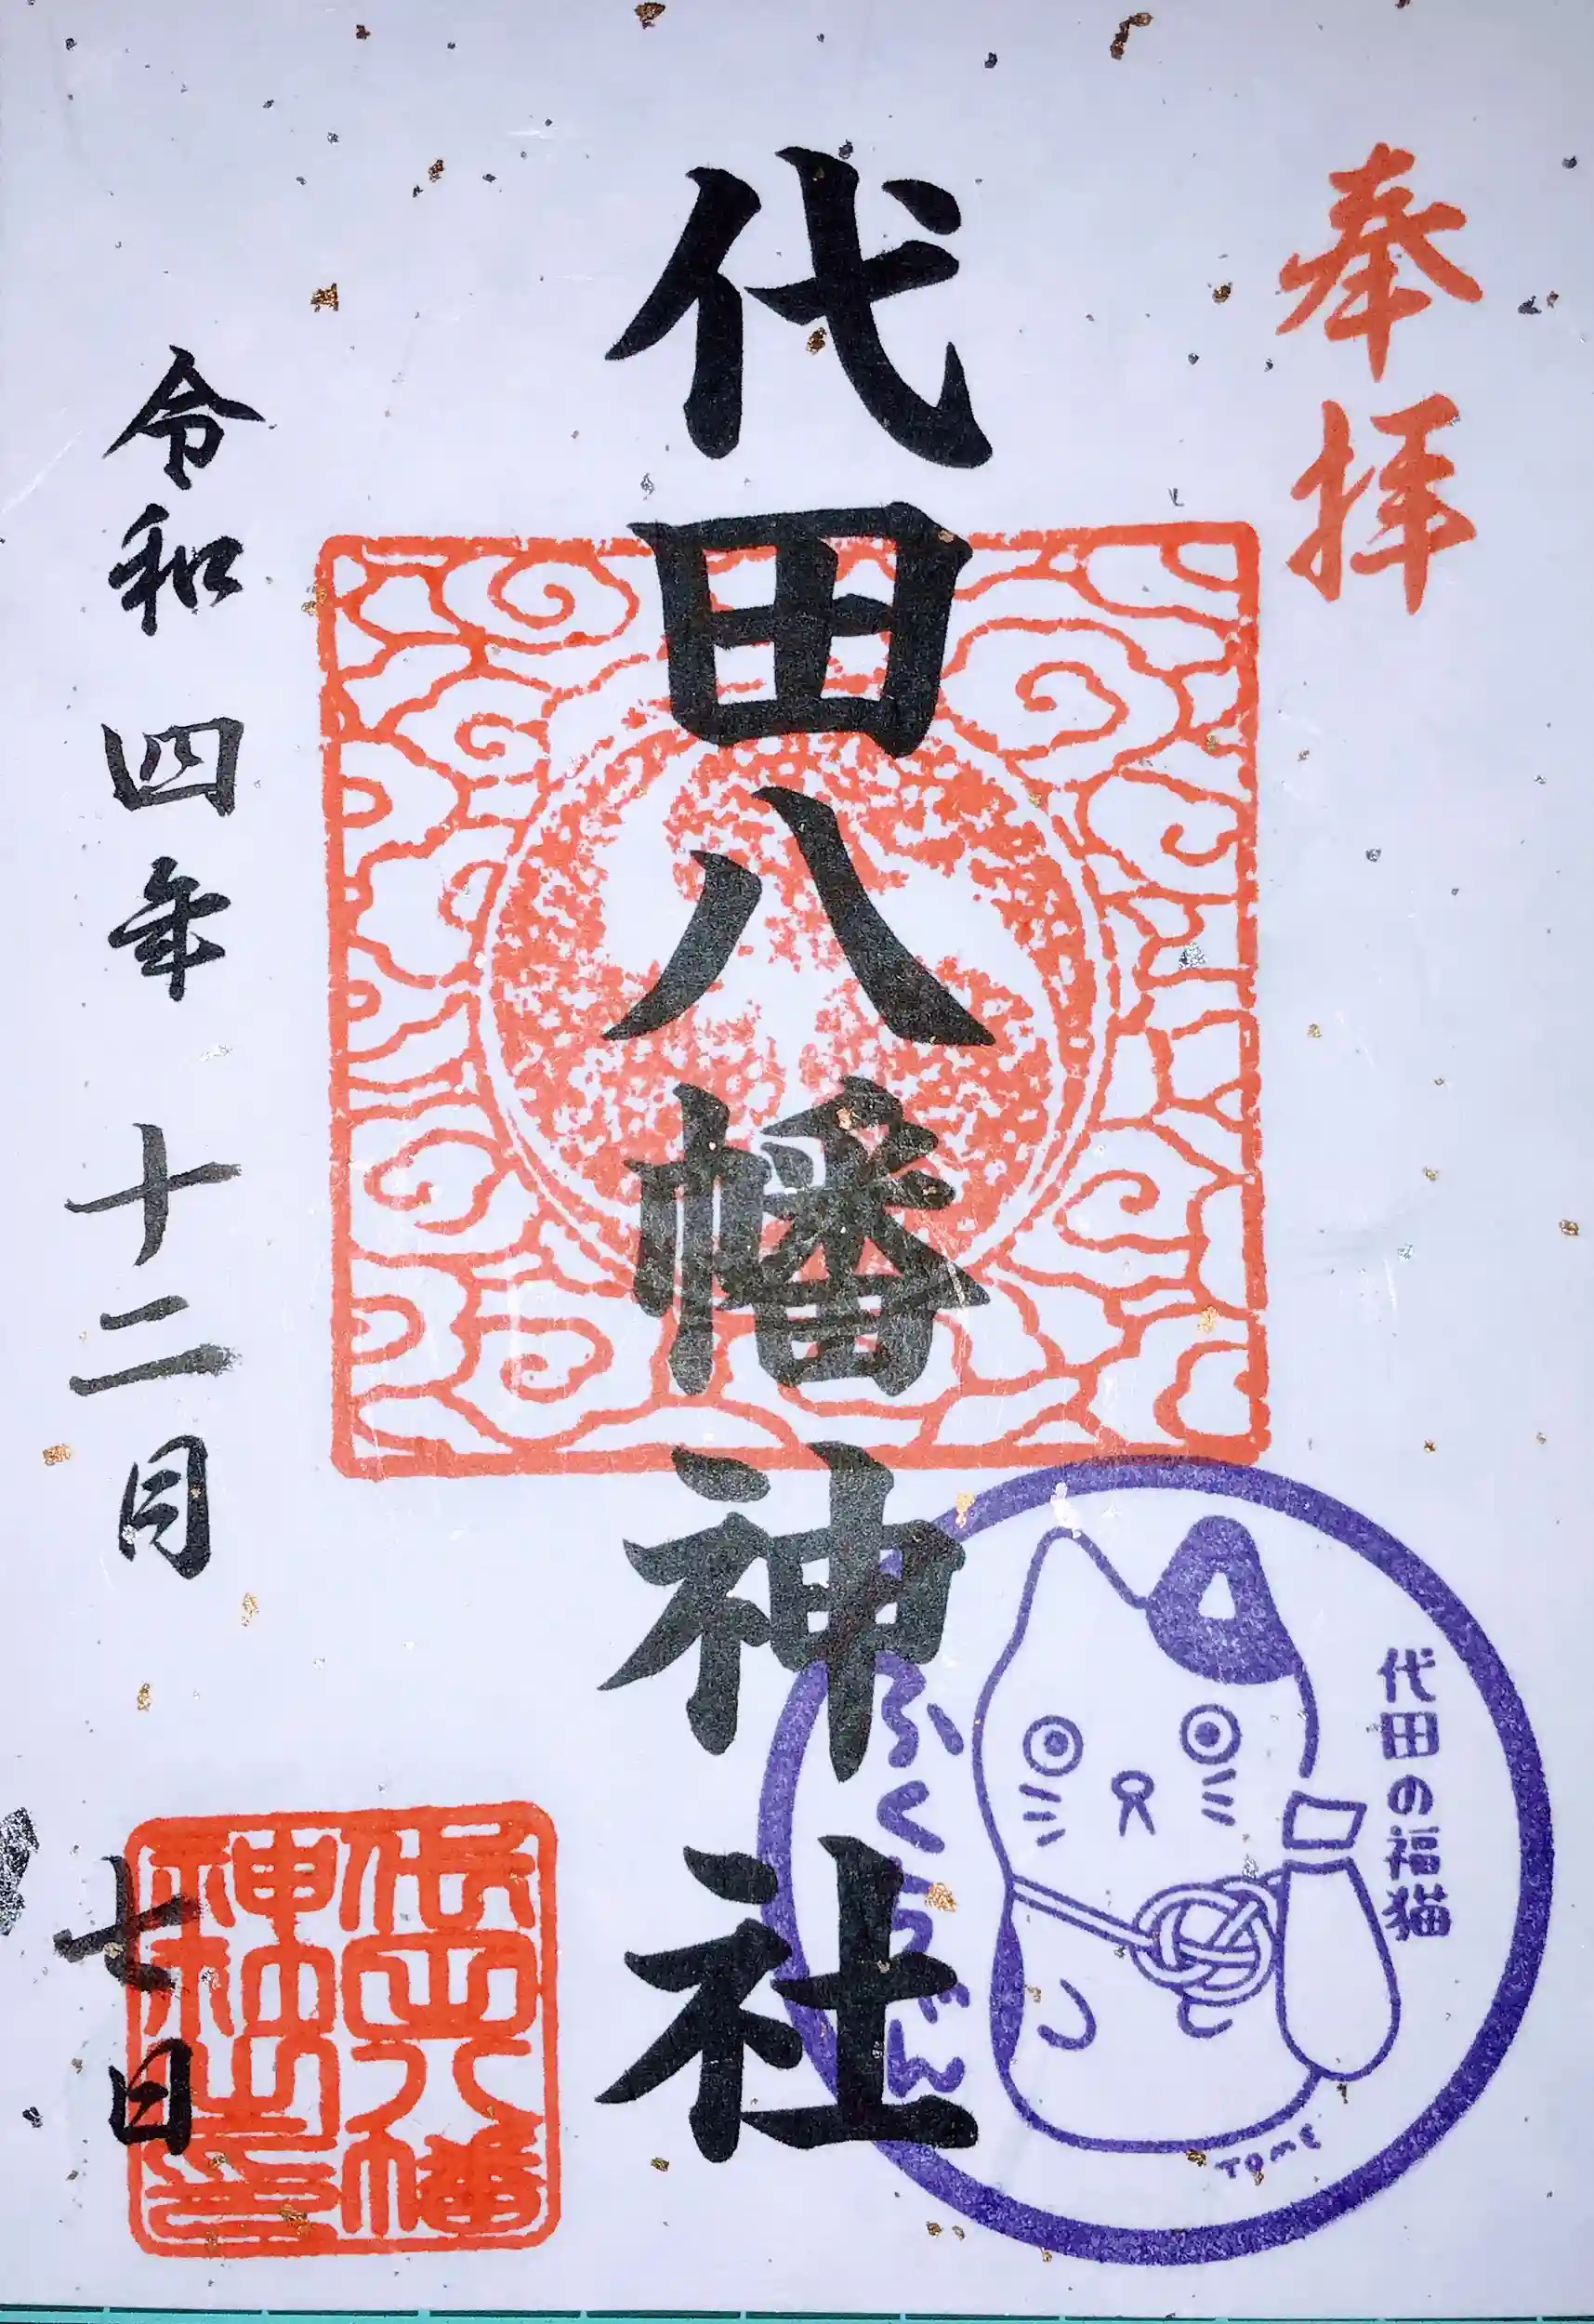 奉拝
代田八幡神社
代田の福猫
TOME
令和四年十二月七日
代田八幡
神社之印